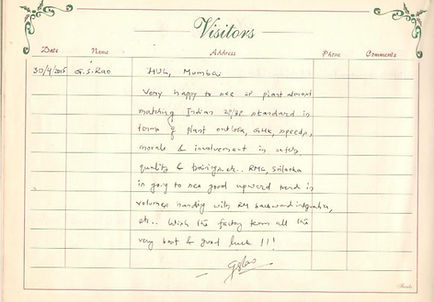 Visitors
Date Name Address Phone Comments
30/4/2015 G.S. Rao HUL, Mumbai
Very happy to see plant almost
matching Indian standard in
terms of plant outlook, speeds,
morale & involvement in safety,
quality & training etc.. RMC
is going to see good upward trend in
volumes handling with RM backward integration,
etc.. Wish the factory team all the
very best & good luck !!!